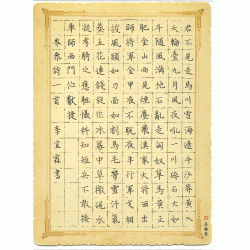 君不見走馬川雪海邊平沙莽黃入
天輪臺九月風夜吼一川碎石大如
斗隨風滿地石亂走匈奴草黃馬正
肥金山西見煙塵飛漢家大將西出
師將軍金甲夜不脫半夜行軍戈相
撥風頭如刀面如割馬毛帶雪汗氣
蒸五花連錢旋作冰幕中草檄硯水
凝虜騎聞之應膽懾料知短兵不敢接
車師西門佇獻捷
岑參詩一首 李宜霖書